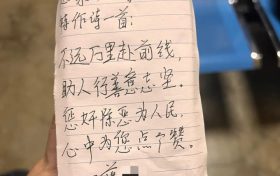 特作诗一首:
不远万里赴前线,
助人行善意志坚。
惩奸除恶为人民,
心中为您点个赞。